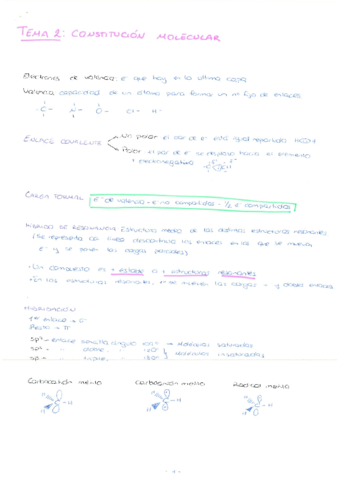 TEMA 2: CONSTITUCIÓN MOLECULAR
Electrones de valencia: e⁻ que hay en la última capa
Valencia: capacidad de un átomo para formar un nº fijo de enlaces
-C- -N- -O- Cl- H-
ENLACE COVALENTE
No polar: el par de e⁻ está igual repartido
Polar: el par de e⁻ se desplaza hacia el elemento
+ electronegativo
CARGA FORMAL: e⁻ de valencia - e⁻ no compartidos - 1/2 e⁻ compartidos
HÍBRIDO DE RESONANCIA: Estructura medio de las distintas estructuras resonantes
(Se representa con línea discontinua los enlaces en los que se mueven
e⁻ y se ponen las cargas parciales)
· Un compuesto es + estable a + estructuras resonantes
· En las estructuras resonantes, se mueven las cargas - y dobles enlaces
HIBRIDACIÓN
1er enlace → σ
Resto → π
sp³ - enlace sencillo ángulo 109° → Moléculas saturadas
sp² - " doble " 120°
sp - " triple " 180°
Moléculas insaturadas
Carbocatión metilo carbanión metilo Radical metilo
H H H
H H H
H H H